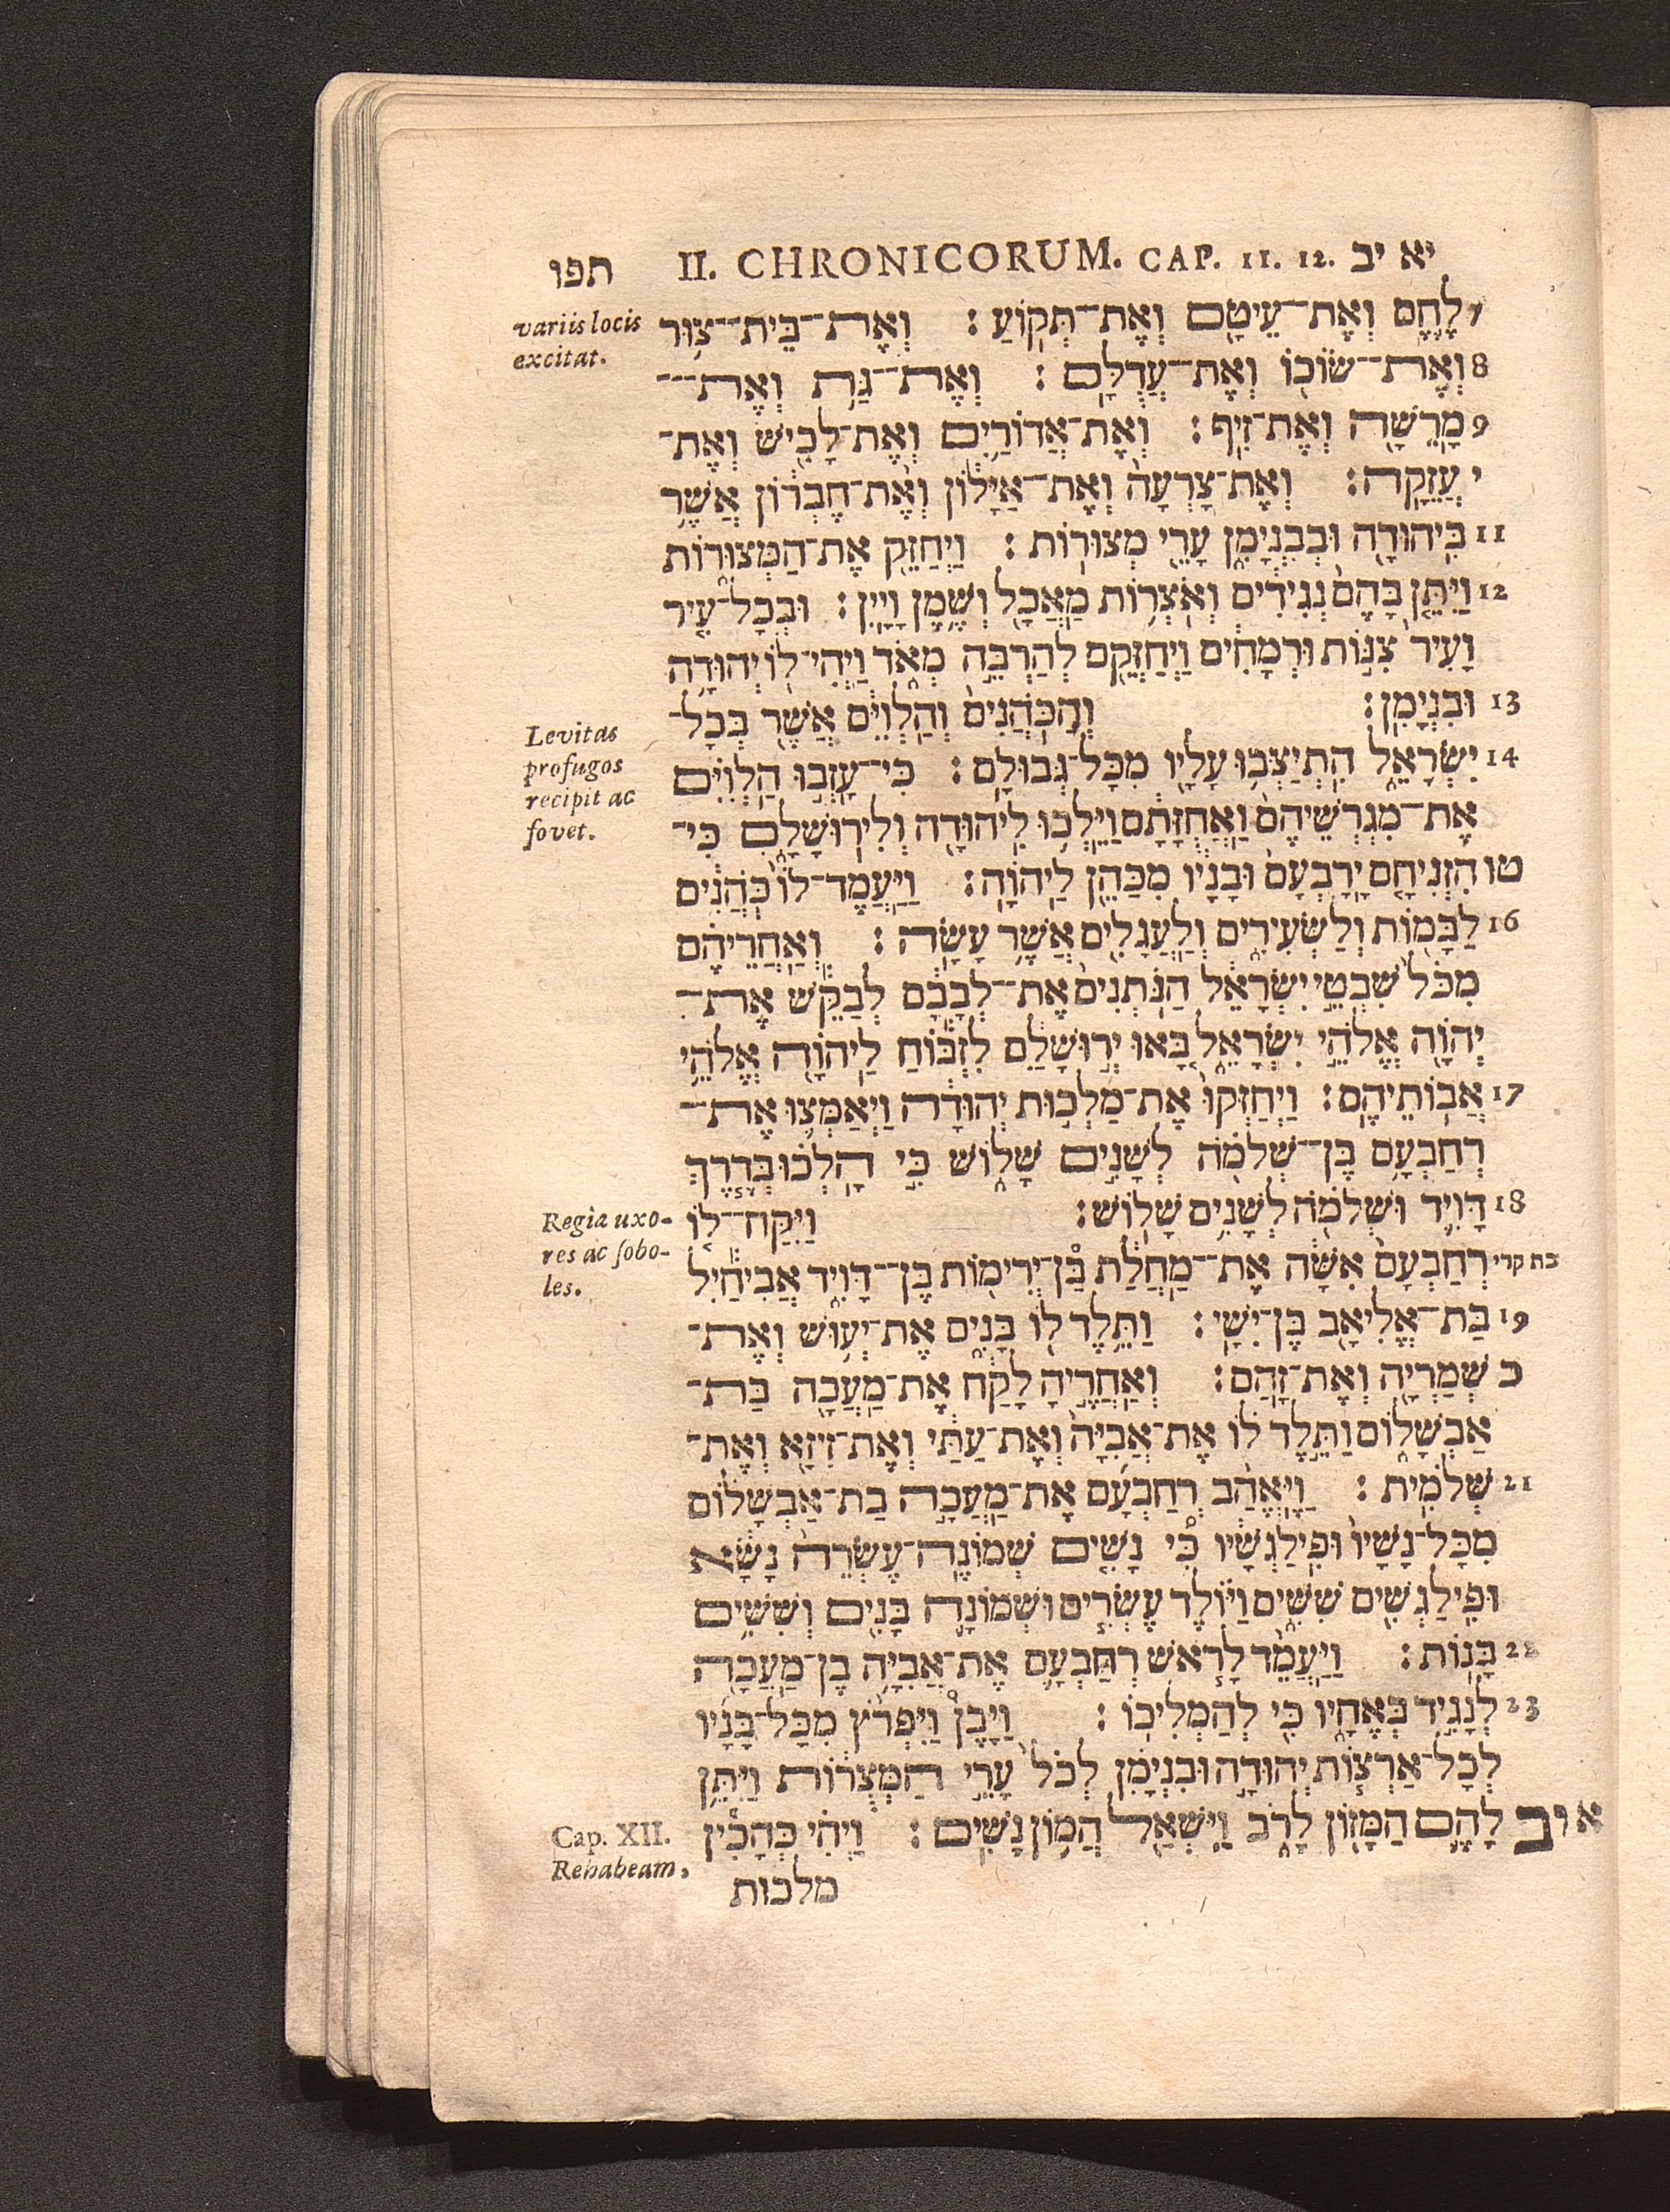 תפו II. CHRONICORUM. CAP. 11. 12. יא יב
variis locis
excitat.
7 לֶחֶם וְאֶת־עֵיטָם וְאֶת־תְּקוֹעַ׃ וְאֶת־בֵּית־צוּר
8 וְאֶת־שׂוֹכוֹ וְאֶת־עֲדֻלָּם׃ וְאֶת־גַּת וְאֶת־
9 מָרֵשָׁה וְאֶת־זִיף׃ וְאֶת־אֲדוֹרַיִם וְאֶת־לָכִישׁ וְאֶת־
י עֲזֵקָה׃ וְאֶת־צָרְעָה וְאֶת־אַיָּלוֹן וְאֶת־חֶבְרוֹן אֲשֶׁר
11 בִּיהוּדָה וּבְבִנְיָמִן עָרֵי מְצוּרוֹת׃ וַיְחַזֵּק אֶת־הַמְּצוּרוֹת
12 וַיִּתֵּן בָּהֶם נְגִידִים וְאֹצְרוֹת מַאֲכָל וְשֶׁמֶן וָיָיִן׃ וּבְכָל־עִיר
וָעִיר צִנּוֹת וּרְמָחִים וַיְחַזְּקֵם לְהַרְבֵּה מְאֹד וַיְהִי־לוֹ יְהוּדָה
13 וּבִנְיָמִן׃ וְהַכֹּהֲנִים וְהַלְוִיִּם אֲשֶׁר בְּכָל־
Levitas
profugos
recipit ac
fovet.
14 יִשְׂרָאֵל הִתְיַצְּבוּ עָלָיו מִכָּל־גְּבוּלָם׃ כִּי־עָזְבוּ הַלְוִיִּם
אֶת־מִגְרְשֵׁיהֶם וַאֲחֻזָּתָם וַיֵּלְכוּ לִיהוּדָה וְלִירוּשָׁלָ͏ִם כִּי־
טו הִזְנִיחָם יָרָבְעָם וּבָנָיו מִכַּהֵן לַיהוָה׃ וַיַּעֲמֶד־לוֹ כֹּהֲנִים
16 לַבָּמוֹת וְלַשְּׂעִירִים וְלָעֲגָלִים אֲשֶׁר עָשָׂה׃ וְאַחֲרֵיהֶם
מִכֹּל שִׁבְטֵי יִשְׂרָאֵל הַנֹּתְנִים אֶת־לְבָבָם לְבַקֵּשׁ אֶת־
יְהוָה אֱלֹהֵי יִשְׂרָאֵל בָּאוּ יְרוּשָׁלַ͏ִם לִזְבּוֹחַ לַיהוָה אֱלֹהֵי
17 אֲבוֹתֵיהֶם׃ וַיְחַזְּקוּ אֶת־מַלְכוּת יְהוּדָה וַיְאַמְּצוּ אֶת־
רְחַבְעָם בֶּן־שְׁלֹמֹה לְשָׁנִים שָׁלוֹשׁ כִּי הָלְכוּ בְּדֶרֶךְ
18 דָּוִיד וּשְׁלֹמֹה לְשָׁנִים שָׁלוֹשׁ׃ וַיִּקַּח־לוֹ
Regia uxo-
res ac sobo-
les.
רְחַבְעָם אִשָּׁה אֶת־מַחֲלַת בֶּן־יְרִימוֹת בֶּן־דָּוִיד אֲבִיחַיִל בת קרי
19 בַּת־אֱלִיאָב בֶּן־יִשָׁי׃ וַתֵּלֶד לוֹ בָּנִים אֶת־יְעוּשׁ וְאֶת־
כ שְׁמַרְיָה וְאֶת־זָהַם׃ וְאַחֲרֶיהָ לָקַח אֶת־מַעֲכָה בַּת־
אַבְשָׁלוֹם וַתֵּלֶד לוֹ אֶת־אֲבִיָּה וְאֶת־עַתַּי וְאֶת־זִיזָא וְאֶת־
21 שְׁלֹמִית׃ וַיֶּאֱהַב רְחַבְעָם אֶת־מַעֲכָה בַת־אַבְשָׁלוֹם
מִכָּל־נָשָׁיו וּפִילַגְשָׁיו כִּי נָשִׁים שְׁמוֹנֶה־עֶשְׂרֵה נָשָׂא
וּפִילַגְשִׁים שִׁשִּׁים וַיּוֹלֶד עֶשְׂרִים וּשְׁמוֹנָה בָּנִים וְשִׁשִּׁים
22 בָּנוֹת׃ וַיַּעֲמֵד לָרֹאשׁ רְחַבְעָם אֶת־אֲבִיָּה בֶן־מַעֲכָה
23 לְנָגִיד בְּאֶחָיו כִּי לְהַמְלִיכוֹ׃ וַיָּבֶן וַיִּפְרֹץ מִכָּל־בָּנָיו
לְכָל־אַרְצוֹת יְהוּדָה וּבִנְיָמִן לְכֹל עָרֵי הַמְּצֻרוֹת וַיִּתֵּן
א יב לָהֶם הַמָּזוֹן לָרֹב וַיִּשְׁאַל הֲמוֹן נָשִׁים׃ וַיְהִי כְּהָכִין
Cap. XII.
Rehabeam,
מלכות